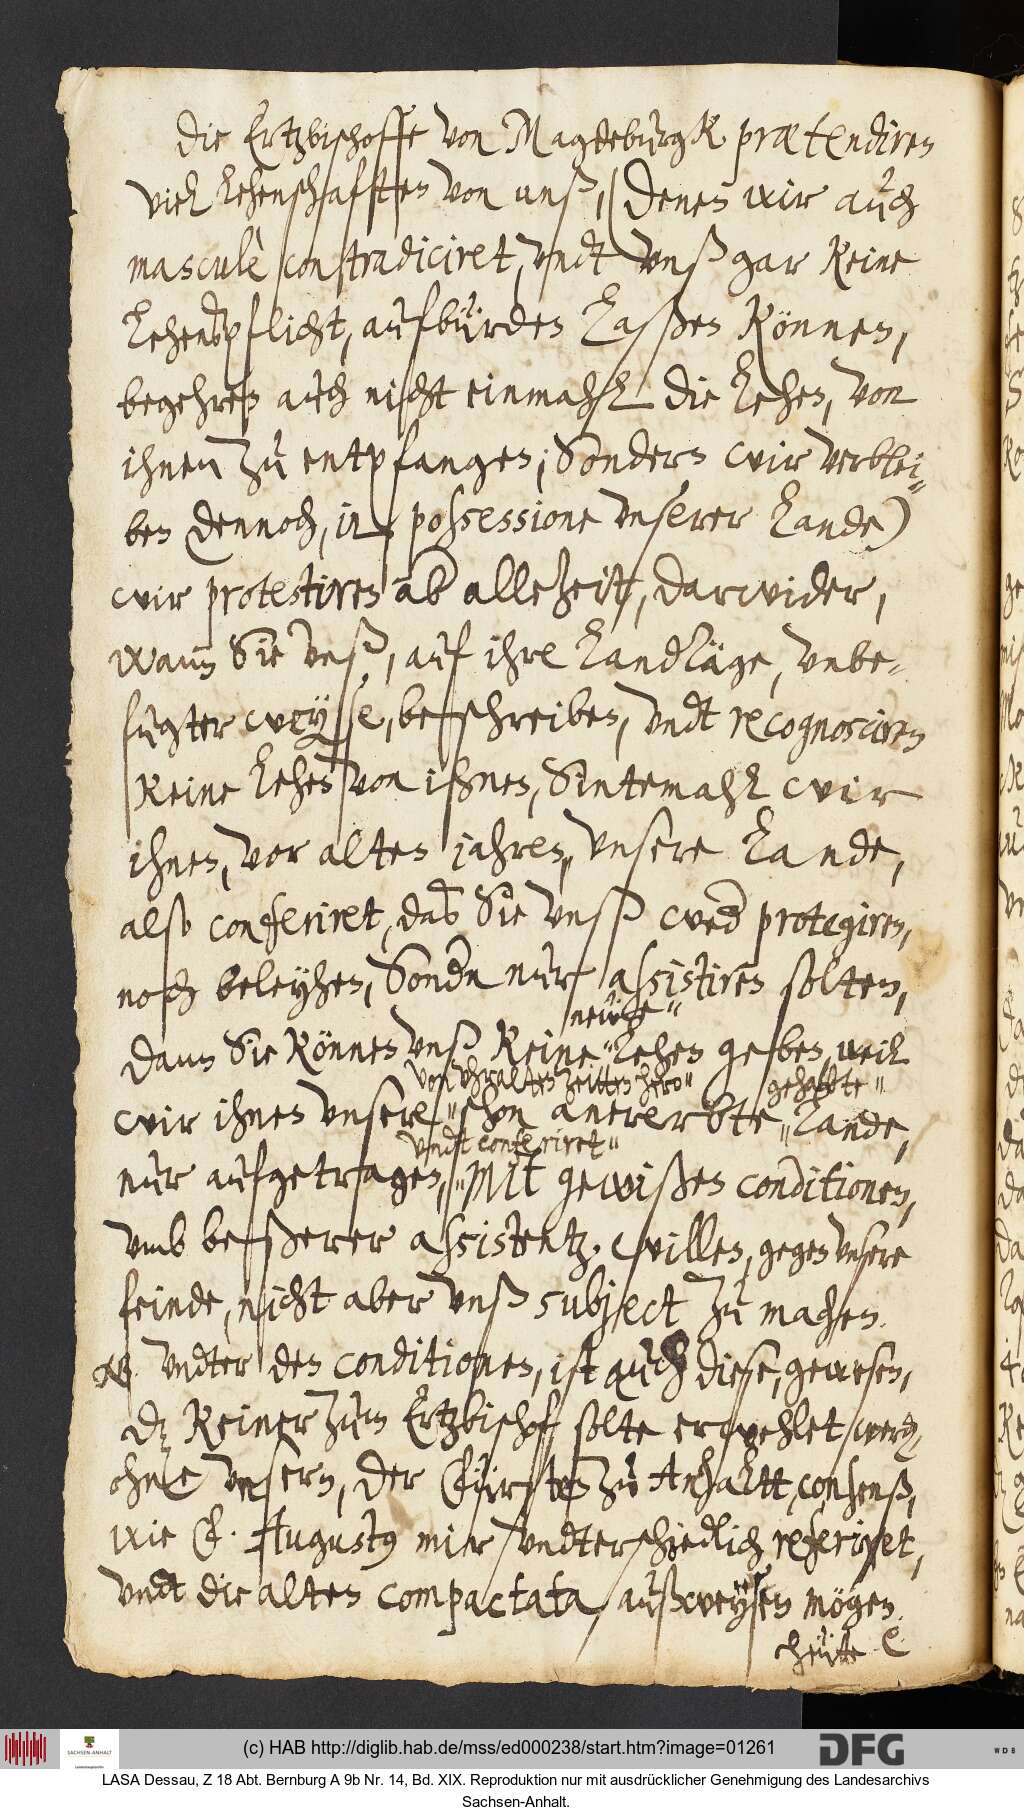 Die Ertzbischoffe von Magdeburgk prætendiren
viel lehenschafften von unß, (denen wir auch
masculè contradiciret, undt unß gar keine
Lehenspflicht, aufbürden laßen können,
begehren auch nicht einmahl die lehen, von
ihnen zu entpfangen, Sondern wir verblei„
ben dennoch, in possessione unserer Lande)
wir protestiren ab allezeitt, darwider,
wann Sie unß, auf ihre Landtäge, unbe„
fugter weyse, beschreiben, undt recognosciren
keine lehen von ihnen, Sintemahl wir
ihnen, vor alten jahren, unsere Lande,
also conferiret, das Sie unß wed protegiren,
noch beleyhen, Sondn nur assistiren solten,
neẅe„
dann Sie können unß keine „lehen geben, weil
von uhralten zeitten hero„ gehabte„
wir ihnen unsere „schon anererbte „Lande,
undt conferiret„
nur aufgetragen, „Mit gewißen conditionen,
umb beßerer assistentz. willen, gegen unsere
feinde, nicht aber unß subject zu machen.
NB. undter den conditionen, ist auch diese, gewesen,
dz keiner zum Ertzbischof, solte erwehlet werden,
ohne unsern, der Fürsten zu Anhaltt, consenß,
wie F. Augustus mir undterschiedlich referiret,
undt die alten compactata, außweysen mögen.
heütte
(c) HAB http://diglib.hab.de/mss/ed000238/start.htm?image=01261
SACHSEN-ANHALT
DFG
WDB
LASA Dessau, Z 18 Abt. Bernburg A 9b Nr. 14, Bd. XIX. Reproduktion nur mit ausdrücklicher Genehmigung des Landesarchivs
Sachsen-Anhalt.